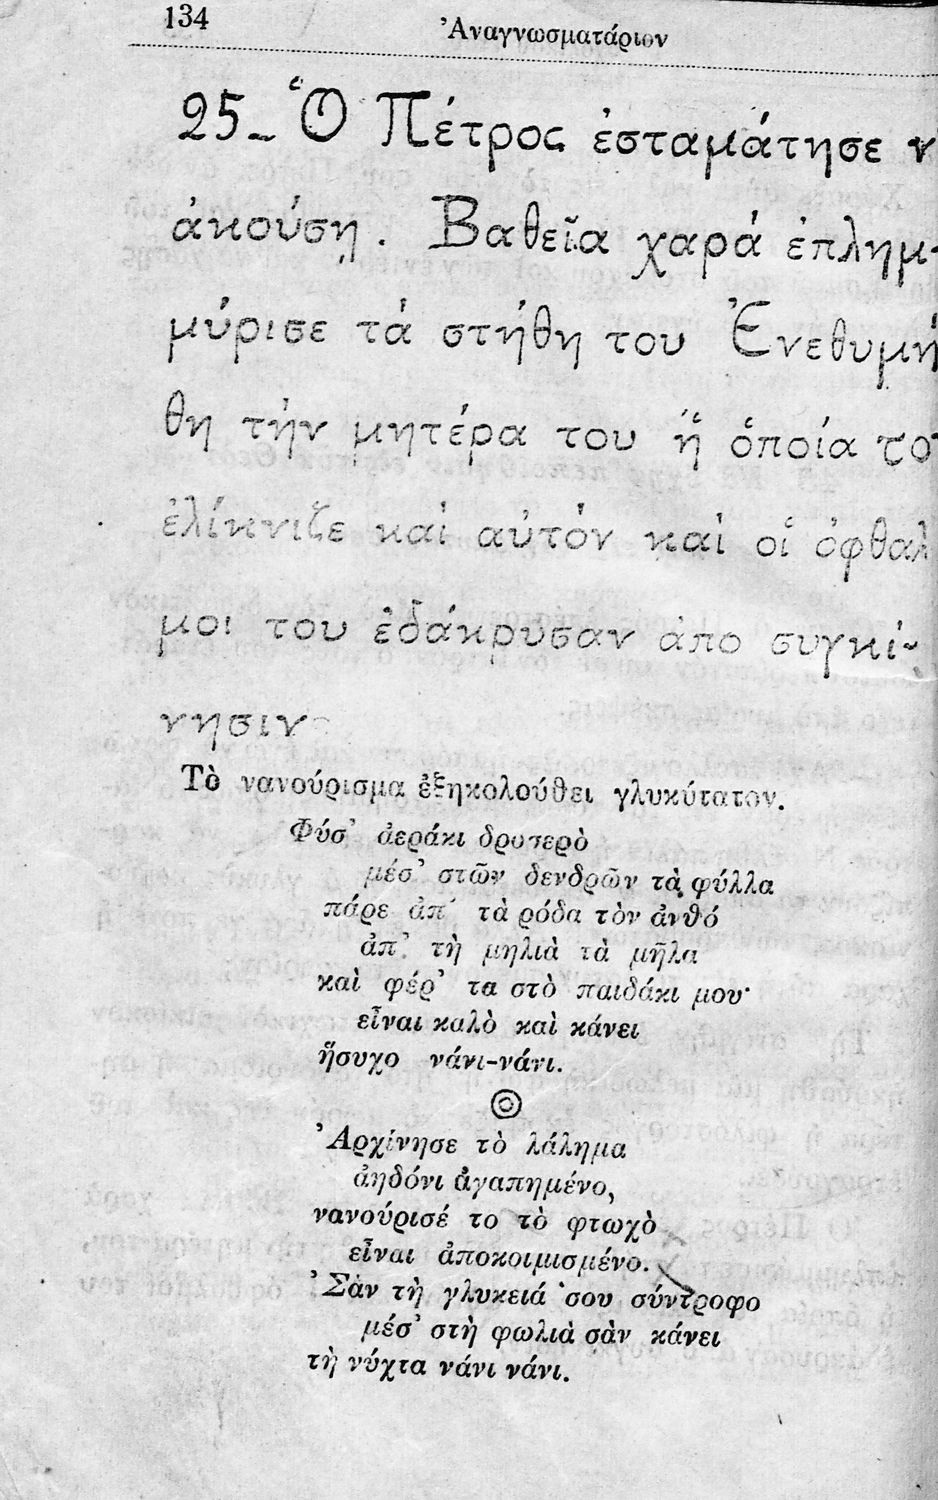 134
Ἀναγνωσματάριον
25_ Ὁ Πέτρος ἐσταμάτησε ν
ἀκούσῃ. Βαθεῖα χαρά ἐπλημ-
μύρισε τά στήθη του Ἐνεθυμή
θη τήν μητέρα του ἥ ὁποία το
ἐλίκνιζε καί αὐτόν καί οἱ ὀφθαλ
μοι του ἐδάκρυσαν ἀπο συγκί-
νησιν
Τὸ νανούρισμα ἐξηκολούθει γλυκύτατον.
Φύσ' ἀεράκι δροσερὸ
μέσ' στῶν δενδρῶν τὰ φύλλα
πάρε ἀπ' τὰ ρόδα τὸν ἀνθό
ἀπ' τὴ μηλιὰ τὰ μῆλα
καὶ φέρ' τα στὸ παιδάκι μου·
εἶναι καλὸ καὶ κάνει
ἥσυχο νάνι-νάνι.
Ἀρχίνησε τὸ λάλημα
ἀηδόνι ἀγαπημένο,
νανούρισέ το τὸ φτωχὸ
εἶναι ἀποκοιμισμένο.
Σὰν τὴ γλυκειά σου σύντροφο
μέσ' στὴ φωλιὰ σὰν κάνει
τὴ νύχτα νάνι νάνι.